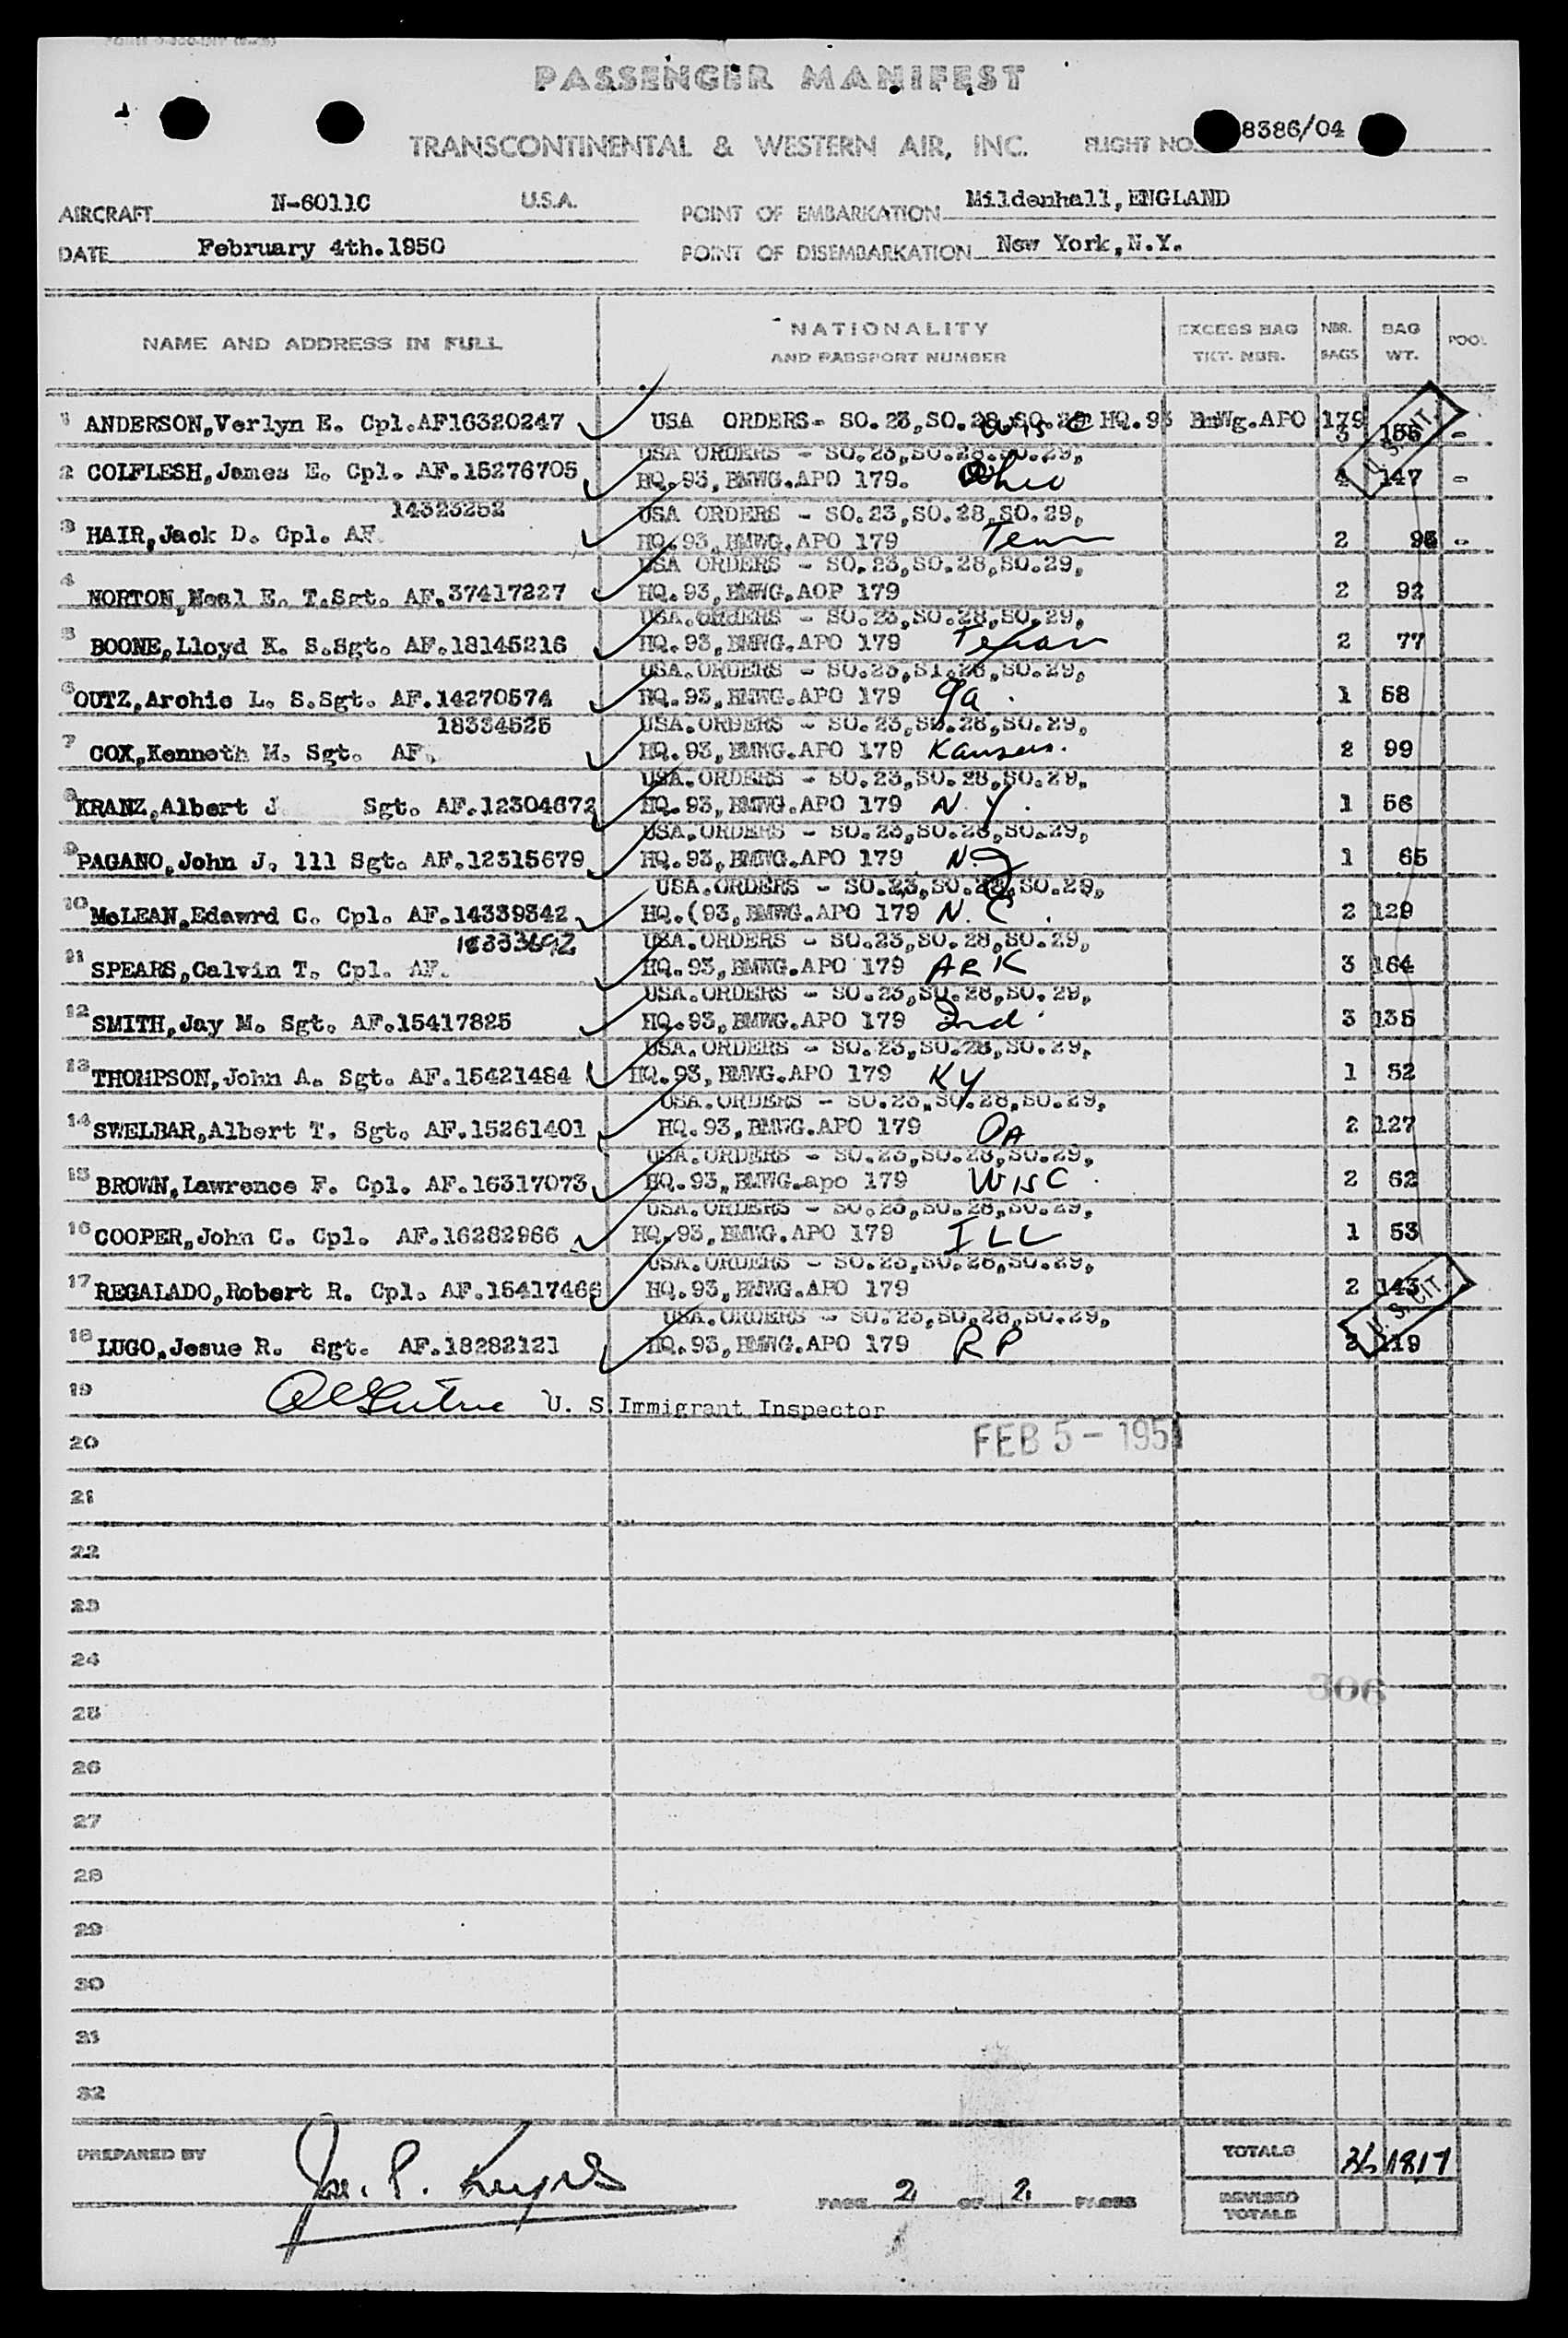 PASSENGER MANIFEST
TRANSCONTINENTAL & WESTERN AIR, INC. FLIGHT NO. 8386/04
AIRCRAFT N-6011C U.S.A. POINT OF EMBARKATION Mildenhall, ENGLAND
DATE February 4th.1950 POINT OF DISEMBARKATION New York, N.Y.
NAME AND ADDRESS IN FULL NATIONALITY AND PASSPORT NUMBER EXCESS BAG TKT. NBR. NBR. BAGS BAG WT. POOL
1 ANDERSON,Verlyn E. Cpl.AF16320247 USA ORDERS- SO.23,SO.28,SO.29 HQ.93 BmWg.APO 179 Wisc 3 155 -
U. S. CIT.
USA ORDERS - SO.23,SO.28.SO.29,
2 COLFLESH,James E. Cpl. AF.15276705 HQ.93,BMWG.APO 179. Ohio 4 147 -
14323252 USA ORDERS - SO.23,SO.28,SO.29,
3 HAIR,Jack D. Cpl. AF. HQ.93,BMWG.APO 179 Tenn 2 93 -
USA ORDERS - SO.23,SO.28,SO.29,
4 NORTON,Neal E. T.Sgt. AF.37417227 HQ.93,BMWG.AOP 179 2 92
USA.ORDERS - SO.23,SO.28,SO.29,
5 BOONE,Lloyd K. S.Sgt. AF.18145216 HQ.93,BMWG.APO 179 Texas 2 77
USA.ORDERS - SO.23,S1.28,SO.29,
6 OUTZ,Archie L. S.Sgt. AF.14270574 HQ.93,BMWG.APO 179 Ga. 1 58
18334525 USA.ORDERS - SO.23,SO.28,SO.29,
7 COX,Kenneth M. Sgt. AF. HQ.93,BMWG.APO 179 Kansas. 2 99
USA.ORDERS - SO.23,SO.28,SO.29,
8 KRANZ,Albert J Sgt. AF.12304672 HQ.93,BMWG.APO 179 N.Y. 1 56
USA.ORDERS - SO.23,SO.28,SO.29,
9 PAGANO,John J. 111 Sgt. AF.12315679 HQ.93,BMWG.APO 179 N.J 1 65
USA.ORDERS - SO.23,SO.28,SO.29,
10 McLEAN,Edawrd C. Cpl. AF.14339342 HQ.(93,BMWG.APO 179 N.C. 2 129
18333692 USA.ORDERS - SO.23,SO.28,SO.29,
11 SPEARS,Calvin T. Cpl. AF. HQ.93,BMWG.APO 179 ARK 3 164
USA.ORDERS - SO.23,SO.28,SO.29,
12 SMITH,Jay M. Sgt. AF.15417825 HQ.93,BMWG.APO 179 Ind 3 135
USA.ORDERS - SO.23,SO.28,SO.29,
13 THOMPSON,John A. Sgt. AF.15421484 HQ.93,BMWG.APO 179 KY 1 52
USA.ORDERS - SO.23,SO.28,SO.29,
14 SWELBAR,Albert T. Sgt. AF.15261401 HQ.93,BMWG.APO 179 PA 2 127
USA.ORDERS - SO.23,SO.28,SO.29,
15 BROWN,Lawrence F. Cpl. AF.16317073 HQ.93,BMWG.apo 179 WISC 2 62
USA.ORDERS - SO.23,SO.28,SO.29,
16 COOPER,John C. Cpl. AF.16282966 HQ.93,BMWG.APO 179 ILL 1 53
USA.ORDERS - SO.23,SO.28,SO.29,
17 REGALADO,Robert R. Cpl. AF.15417466 HQ.93,BMWG.APO 179 2 143
U. S. CIT.
USA.ORDERS - SO.23,SO.28,SO.29,
18 LUGO,Jesue R. Sgt. AF.18282121 HQ.93,BMWG.APO 179 RP 2 119
19 U. S. Immigrant Inspector
20 FEB 5 - 1951
21
22
23
24
306
25
26
27
28
29
30
31
32
PREPARED BY TOTALS 36 1817
PAGE 2 OF 2 PAGES REVISED TOTALS